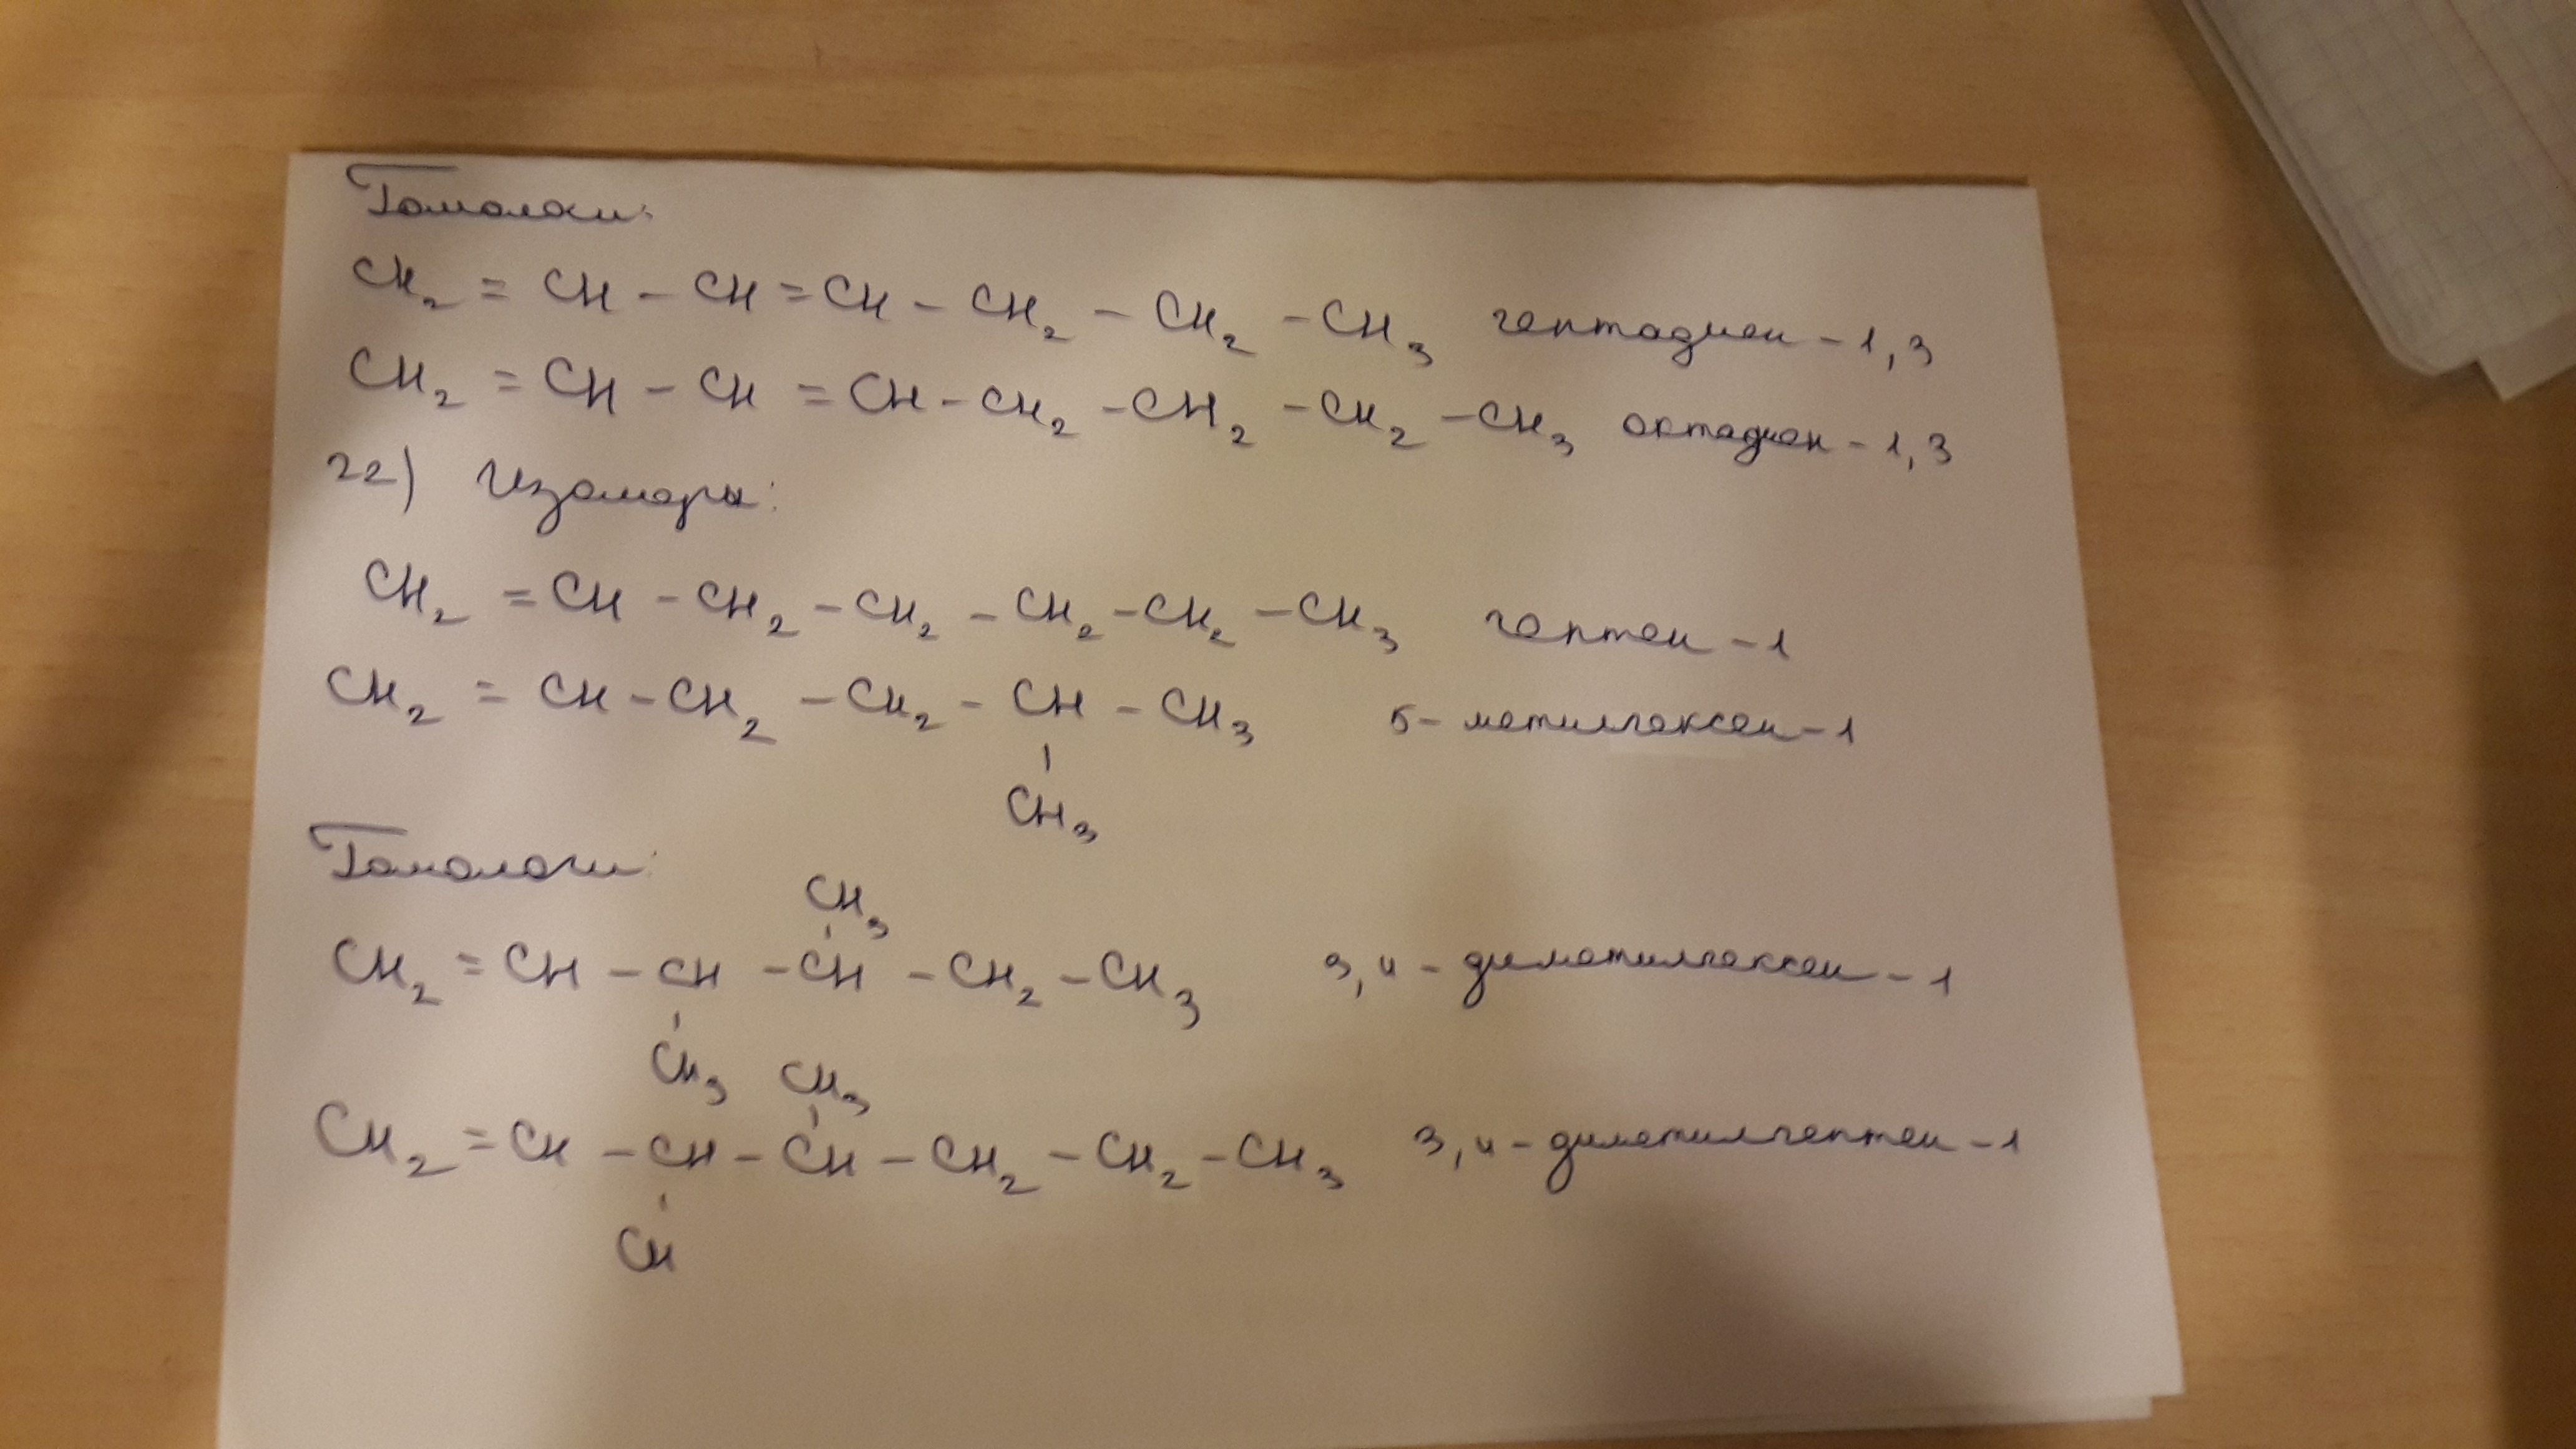 Гомологи:
CH₂ = CH – CH = CH – CH₂ – CH₂ – CH₃ гептадиен – 1,3
CH₂ = CH – CH = CH – CH₂ – CH₂ – CH₂ – CH₃ октадиен – 1,3
22) Изомеры:
CH₂ = CH – CH₂ – CH₂ – CH₂ – CH₂ – CH₃ гептен – 1
CH₂ = CH – CH₂ – CH₂ – CH – CH₃ 5 – метилгексен – 1
CH₃
Гомологи:
CH₃
CH₂ = CH – CH – CH – CH₂ – CH₃ 3,4 – диметилгексен – 1
CH₃ CH₃
CH₂ = CH – CH – CH – CH₂ – CH₂ – CH₃ 3,4 – диметилгептен – 1
CH